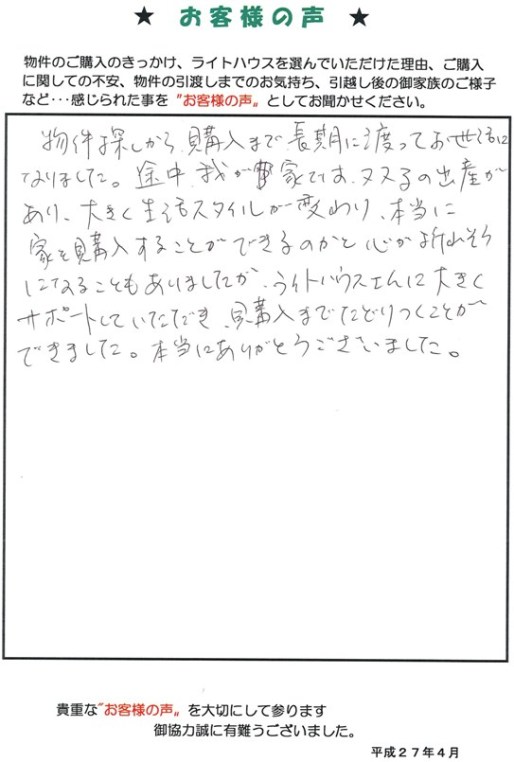 ★ お客様の声 ★
物件のご購入のきっかけ、ライトハウスを選んでいただけた理由、ご購入
に関しての不安、物件の引渡しまでのお気持ち、引越し後の御家族のご様子
など・・・感じられた事を“お客様の声”としてお聞かせください。
物件探しから購入まで長期に渡ってお世話に
なりました。途中、我が家では、ヌヌ子の出産が
あり、大きく生活スタイルが変わり、本当に
家を購入することができるのかと心が折れそう
になることもありましたが、ライトハウスさんに大きく
サポートしていただき、購入までたどりつくことが
できました。本当にありがとうございました。
貴重な“お客様の声”を大切にして参ります
御協力誠に有難うございました。
平成27年4月